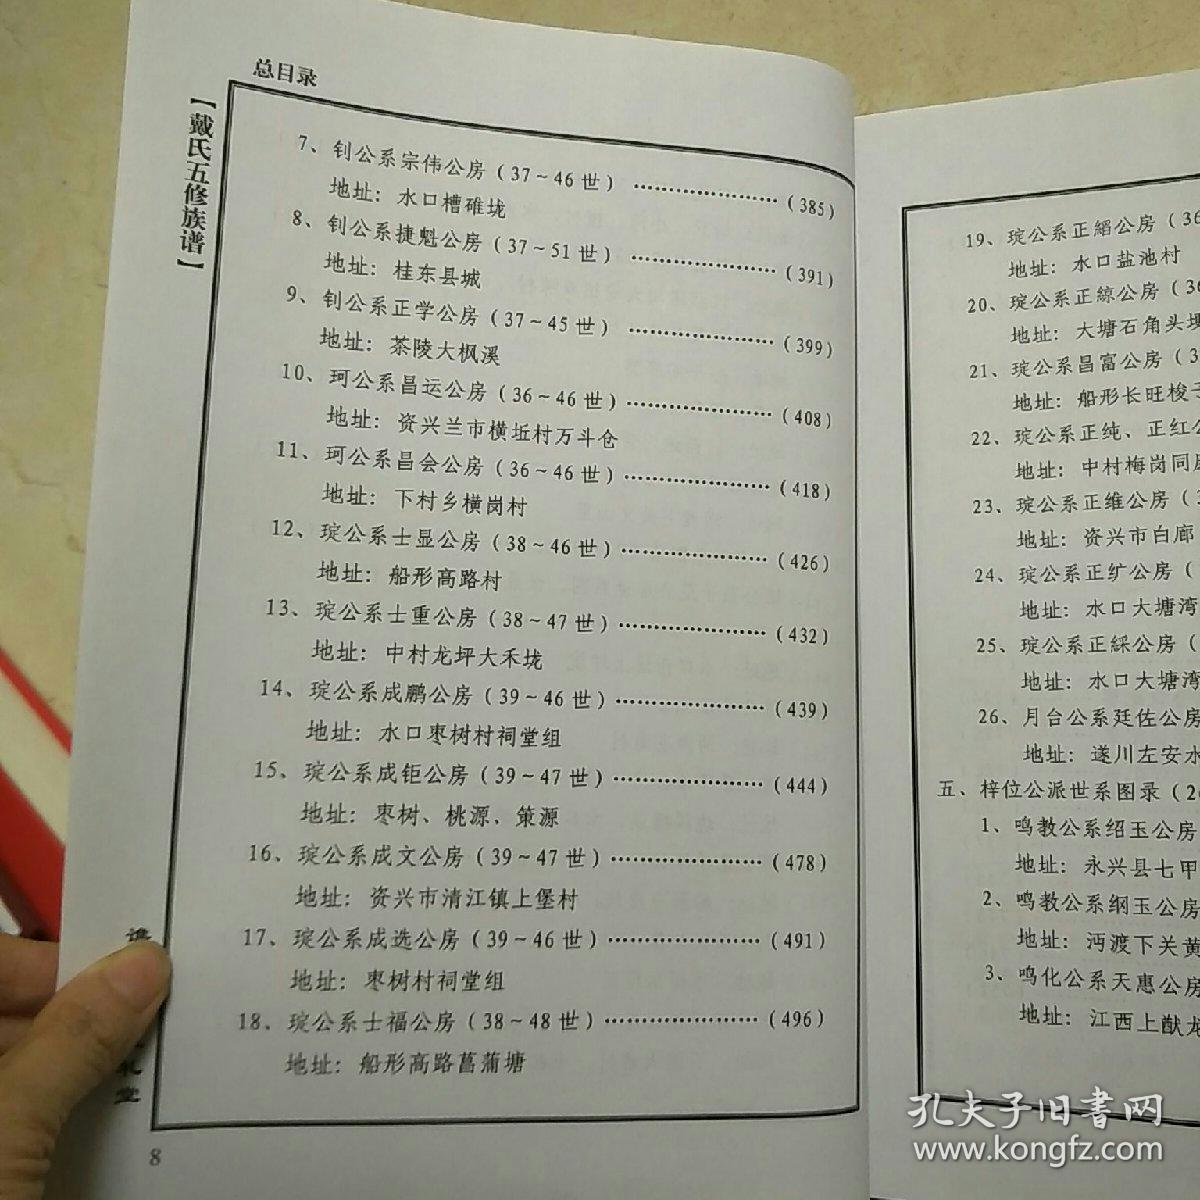 总目录
【戴氏五修族谱】
7、钊公系宗伟公房(37~46世)……………(385)
地址:水口槽碓垅
8、钊公系捷魁公房(37~51世)……………(391)
地址:桂东县城
9、钊公系正学公房(37~45世)……………(399)
地址:茶陵大枫溪
10、珂公系昌运公房(36~46世)……………(408)
地址:资兴兰市横坵村万斗仓
11、珂公系昌会公房(36~46世)……………(418)
地址:下村乡横岗村
12、琔公系士显公房(38~46世)……………(426)
地址:船形高路村
13、琔公系士重公房(38~47世)……………(432)
地址:中村龙坪大禾垅
14、琔公系成鹏公房(39~46世)……………(439)
地址:水口枣树村祠堂组
15、琔公系成钜公房(39~47世)……………(444)
地址:枣树、桃源、策源
16、琔公系成文公房(39~47世)……………(478)
地址:资兴市清江镇上堡村
17、琔公系成选公房(39~46世)……………(491)
地址:枣树村祠堂组
18、琔公系士福公房(38~48世)……………(496)
地址:船形高路菖蒲塘
礼堂
8
19、琔公系正縉公房(36
地址:水口盐池村
20、琔公系正綡公房(36
地址:大塘石角头
21、琔公系昌富公房(3
地址:船形长旺梭子
22、琔公系正纯、正红公
地址:中村梅岗同
23、琔公系正维公房(3
地址:资兴市白廊
24、琔公系正纩公房(
地址:水口大塘湾
25、琔公系正綵公房(
地址:水口大塘湾
26、月台公系廷佐公房
地址:遂川左安水
五、梓位公派世系图录(2
1、鸣教公系绍玉公房
地址:永兴县七甲
2、鸣教公系纲玉公房
地址:沔渡下关黄
3、鸣化公系天惠公房
地址:江西上猷龙
孔夫子旧书网
www.kongfz.com